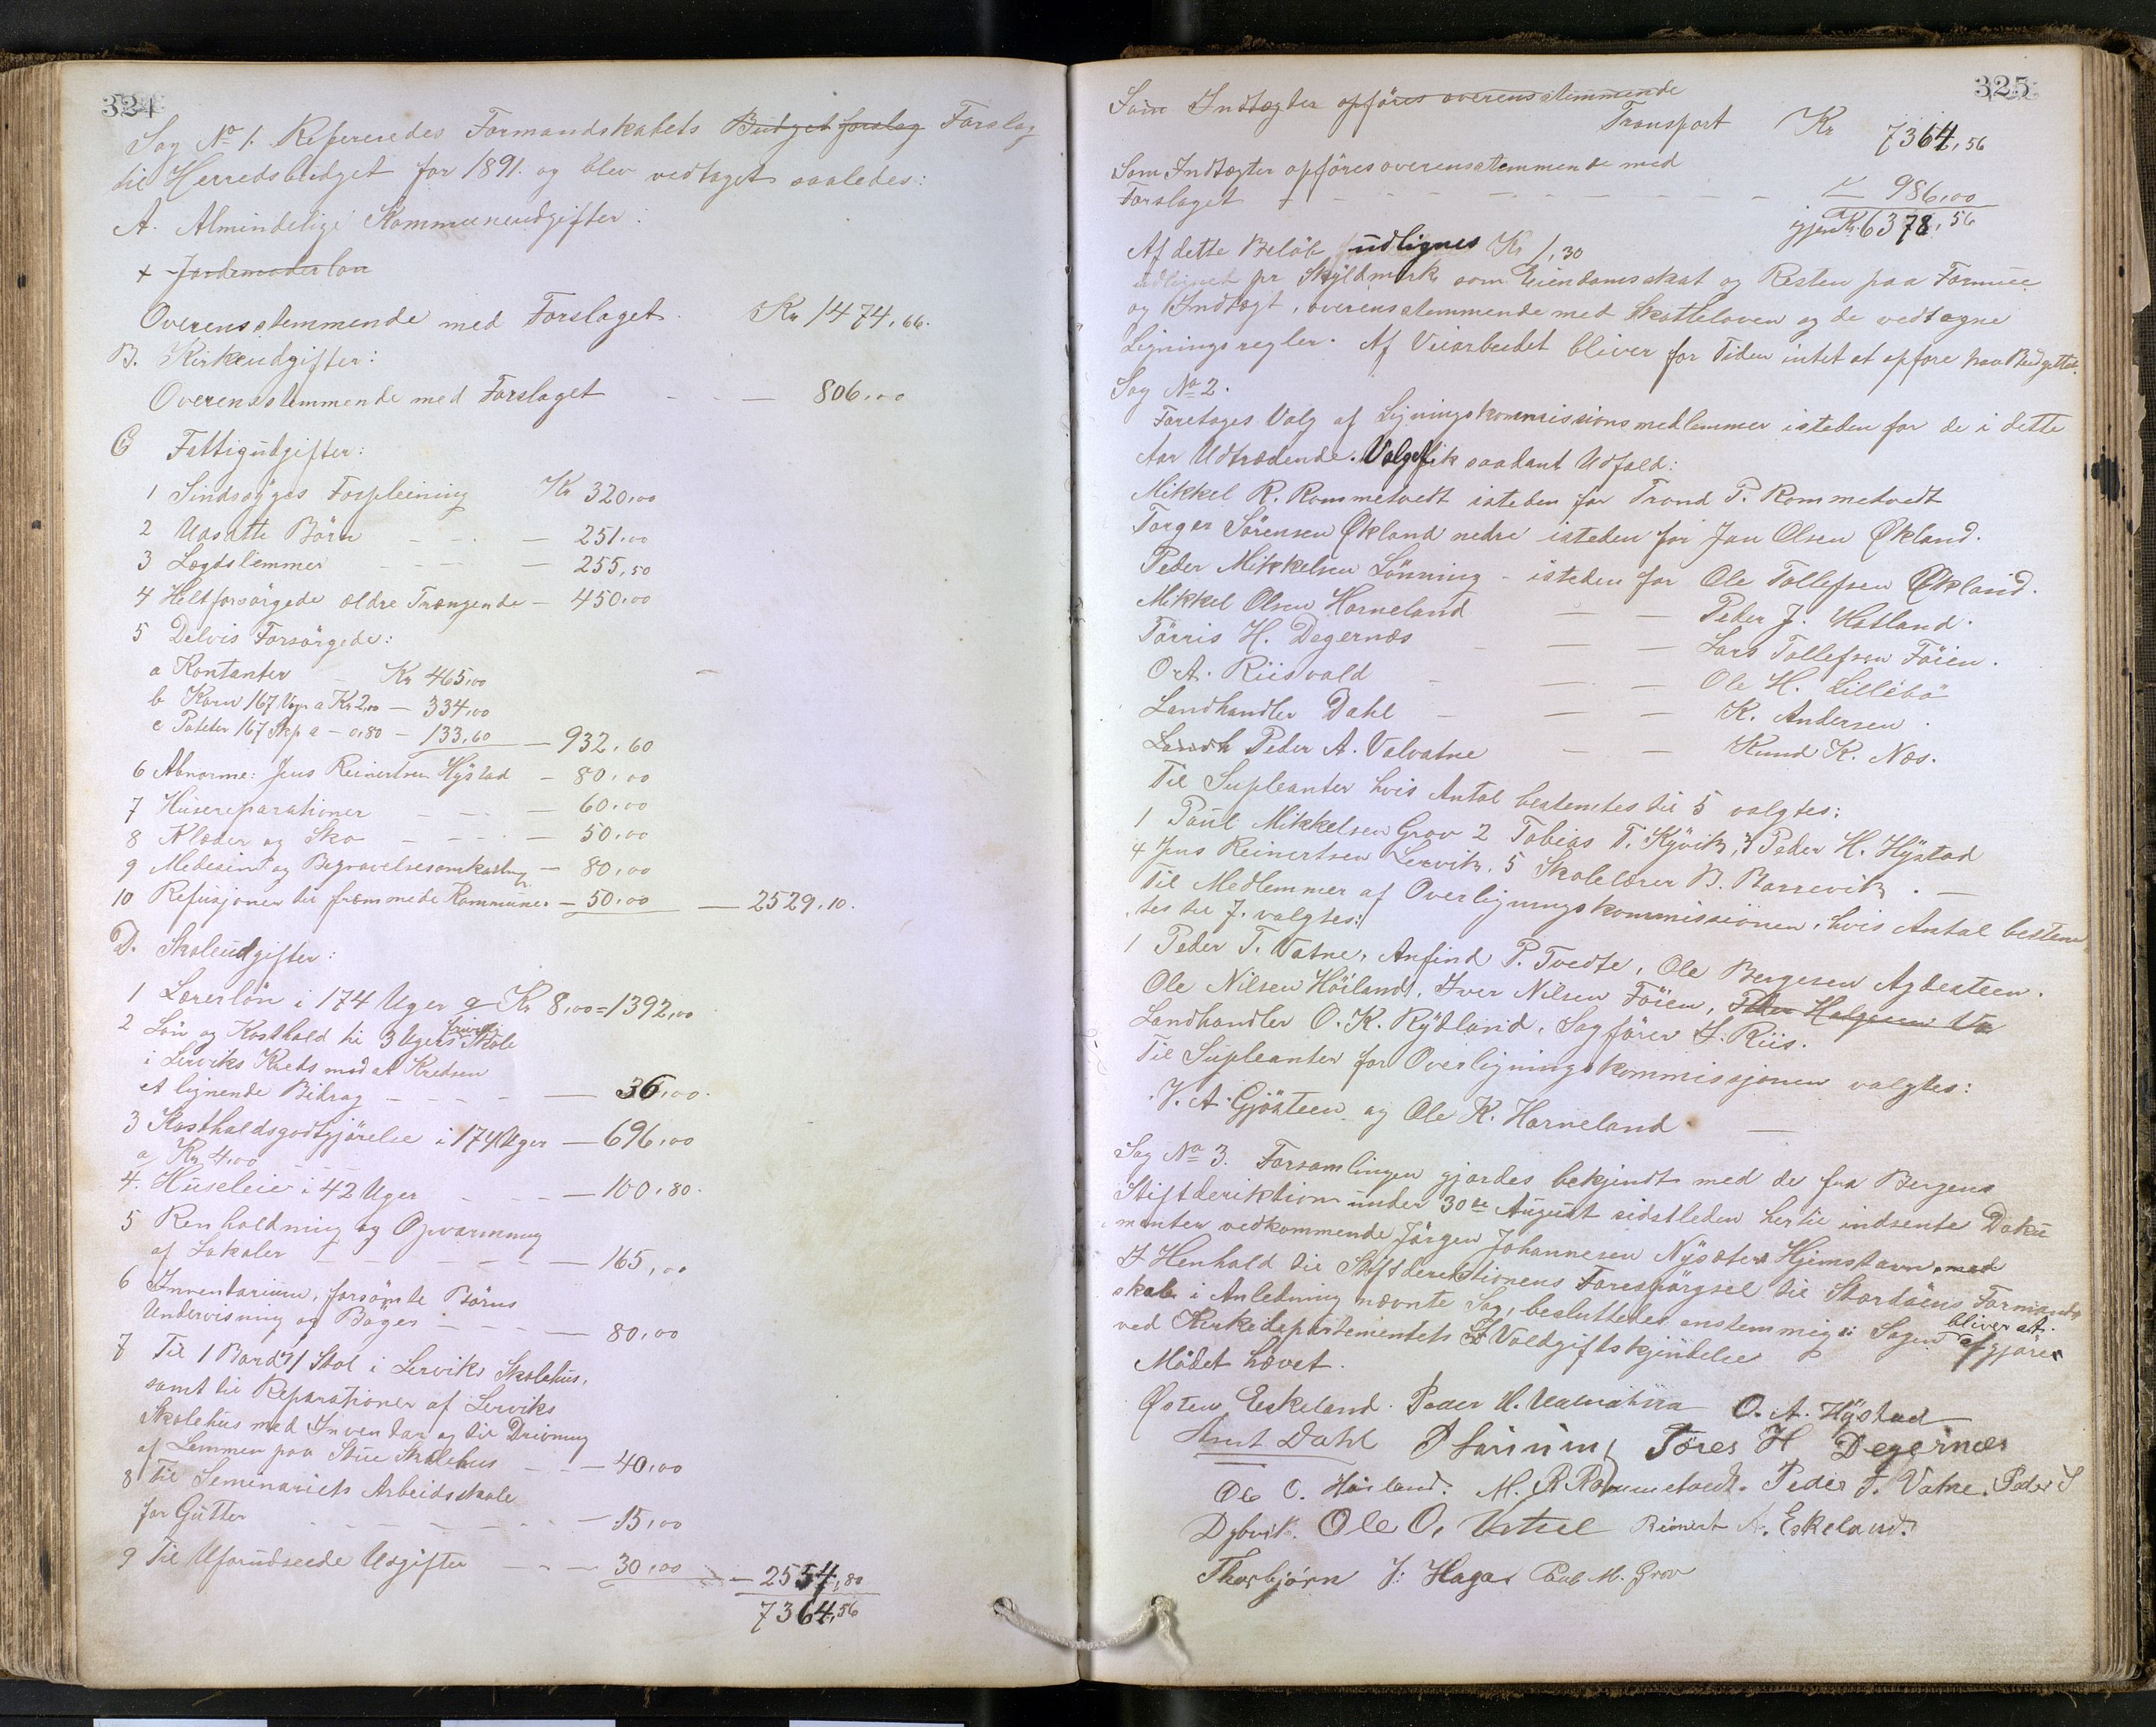 324
Sag No 1. Refereredes Formandskabets Budget forslag Forslag
til Herredsbudget for 1891. og blev vedtaget saaledes:
A. Almindelige Kommuneudgifter:
+ Jordemoderløn
Overensstemmende med Forslaget. Kr 1474,66.
B. Kirkeudgifter:
Overensstemmende med Forslaget - - - 806,00
C Fattigudgifter:
1 Sindssyges Forpleining Kr 320,00
2 Udsatte Börn - - - 251,00
3 Lægdslemmer - - - 255,50
4 Heltforsörgede ældre Trængende - 450,00
5 Delvis Forsörgede:
a Kontanter - Kr 465,00
b Korn 167 Vog a Kr 2,00 - 334,00
c Poteter 167 Skp a - 0,80 - 133,60 - 932,60
6 Abnorme: Jens Reinertsen Hÿstad - 80,00
7 Husereparationer - - - 60,00
8 Klæder og Sko - - - 50,00
9 Medesin og Begravelsesomkostng - 80,00
10 Refusjoner til fræmmede Kommuner - 50,00 - 2529,10.
D. Skoleudgifter:
1 Lærerlön i 174 Uger a Kr 8,00 = 1392,00
2 Lön og Kosthold til 3 Ugers frivil. Skole
i Lerviks Kreds mod at Kredsen
et lignende Bidrag - - - - 36,00.
3 Kostholdsgodtgjörelse i 174 Uger - 696,00
a Kr 4,00
4. Huseleie i 42 Uger - - - 100,80.
5 Renholdning og Opvarmning
af Lokaler - - - - 165,00
6 Inventarium, forsömte Börns
Undervisning og Böger - - - 80,00
7 Til 1 Bord & 1 Stol i Lerviks Skolehus,
samt til Reparationer af Lerviks
Skolehus med Inventar og til Drivning
af Lemmen paa Stue Skolehus - - - 40,00
8 Til Seminariets Arbeidsskole
for Gutter - - - - - 15,00
9 Til Uforudseede Udgifter - - - 30,00 - 2554,80
7364,56
325
Som Indtægter opföres overensstemmende
Transport Kr 7364,56
Som Indtægter opföres overensstemmende med
Forslaget - - - - - - - - 986,00
igjen Kr. 6378,56
Af dette Belöb udlignes Kr 1,30
udlignet pr Skÿldmark som Eiendomsskat og Resten paa Formue
og Indtægt, overensstemmende med Skatteloven og de vedtagne
Ligningsregler. Af Veiarbeidet bliver for Tiden intet at opföre paa Budgettet.
Sag No 2.
Foretoges Valg af Ligningskommissionsmedlemmer isteden for de i dette
Aar Udtrædende. Valget fik saadant Udfald:
Mikkel R. Rommetvedt isteden for Trond P. Rommetvedt
Torger Sörensen Økland nedre isteden for Jan Olsen Økland.
Peder Mikkelsen Lönning - isteden for Ole Tollefsen Økland.
Mikkel Olsen Horneland - - Peder J. Hatland.
Törris H. Degernæs - - - Lars Tollefsen Föien.
O. A. Riisvold - - - Ole H. Lillebö
Landhandler Dahl - - - K. Andersen.
Landh Peder A. Valvatne - - Knud K. Næs.
Til Supleanter hvis Antal bestemtes til 5 valgtes:
1 Poul Mikkelsen Grov 2 Tobias T. Kÿvik, 3 Peder H. Hÿstad
4 Jens Reinertsen Lervik, 5 Skolelærer B. Barrevik. -
Til Medlemmer af Overligningskommissionen, hvis Antal bestem-
tes til 7. valgtes:
1 Peder T. Vatne, Anfind P. Tvedte, Ole Bergesen Agdesteen.
Ole Nilsen Höiland, Iver Nilsen Föien, Peder Helgesen Va
Landhandler O. K. Rÿdland, Sagförer I. Riis.
Til Supleanter for Overligningskommissjonen valgtes:
V. A. Gjösteen og Ole K. Horneland. -
Sag No 3. Forsamlingen gjordes bekjendt med de fra Bergens
Stiftderiktion under 30te August sidstleden hertil indsente Doku
menter vedkommende Jörgen Johannesen Nÿsæters Hjemstavn, med
I Henhold til Stiftderektionens Forespörgsel til Stordöens Formand-
skab i Anledning nævnte Sag, besluttedes enstemmig: Sagen bliver at afgjöres
ved Kirkedepartementets Voldgiftskjendelse
Mödet hævet.
Østen Eskeland. Peder A. Valvatna O. A. Hÿstad
Knut Dahl P Lönning Töres H Degernæs
Ole O. Höiland. M. R Rommetvedt. Peder T. Vatne. Peder S
Dybvik. Ole O. Vatne Reinert A. Eskeland.
Thorbjörn J: Haga. Poul M. Grov